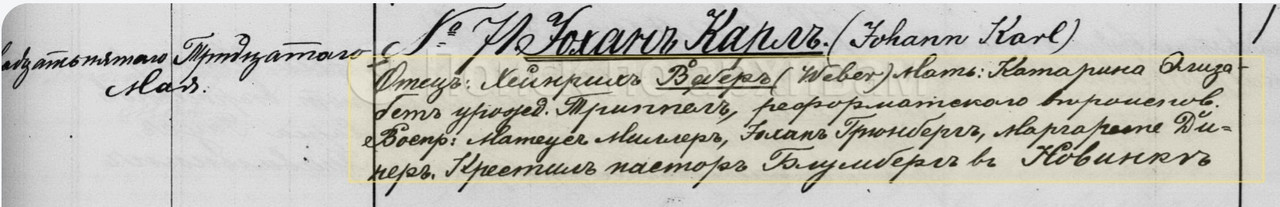 двадцатьпятаго Тридцатаго
Мая.
№ 71. Іоханъ Карлъ. (Johann Karl)
Отецъ: Хейнрихъ Веберъ (Weber) Мать: Катарина Элиза-
бетъ урожд. Триппель, реформатскаго вѣроиспов.
Воспр: Матеусъ Миллеръ, Іоханъ Грюнбергъ, Маргарете Ди-
неръ. Крестилъ пасторъ Блумбергъ въ Новинкѣ